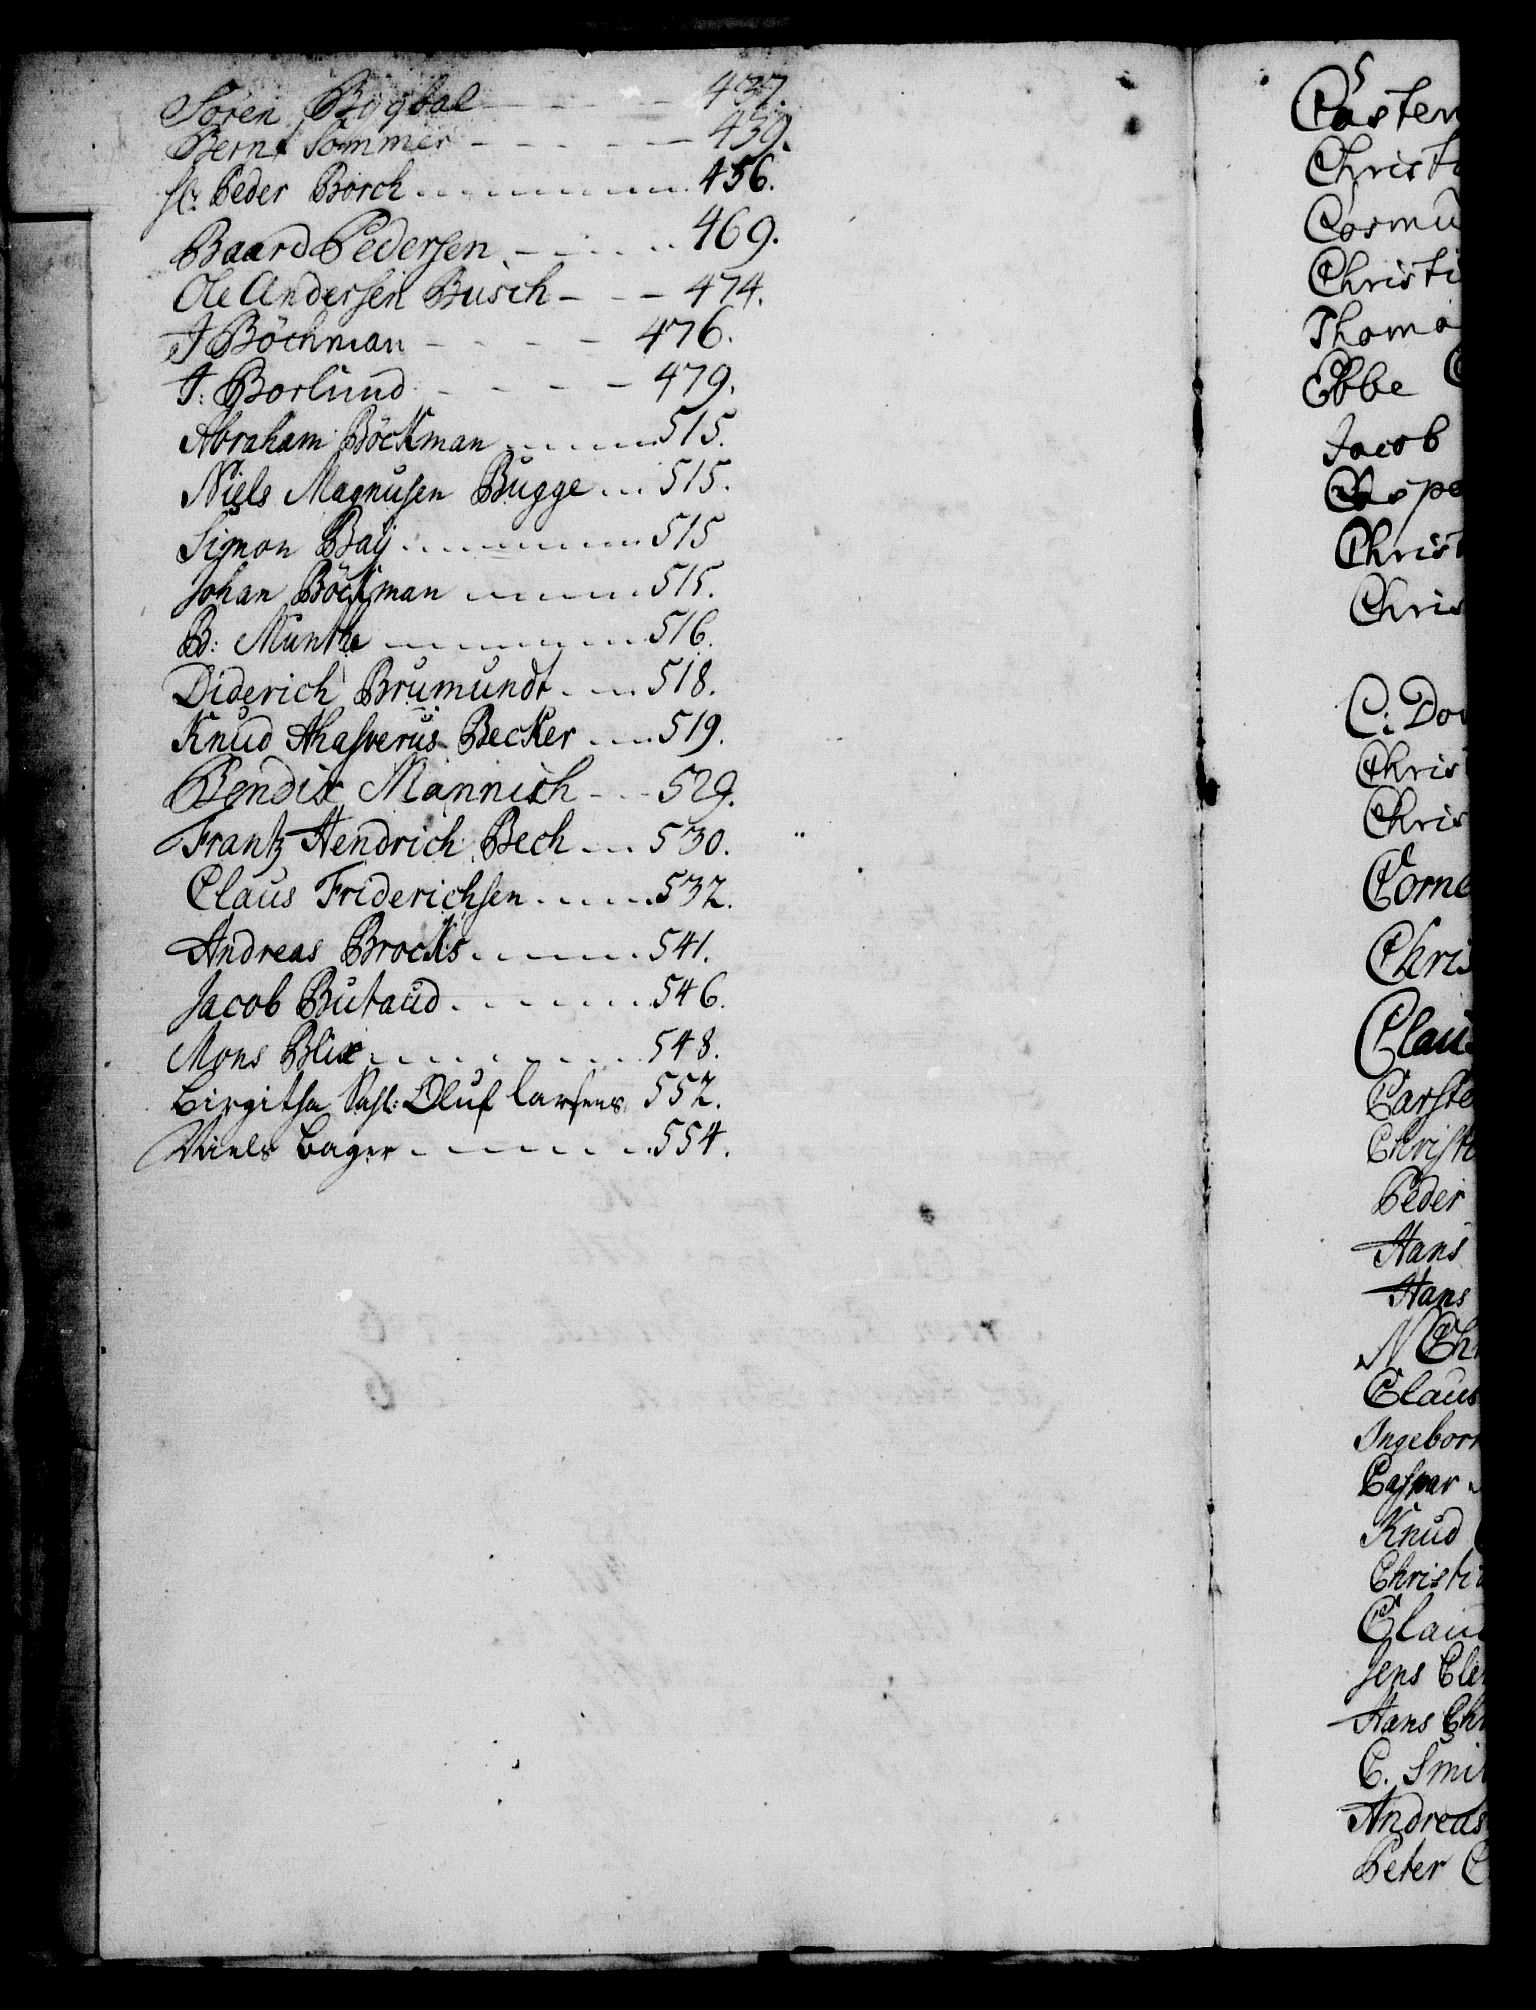 Sören Bygbal - - - - 437.
Bernt Sommer - - - - - 450.
Sl: Peder Borch . . . . . . . . . 456.
Baard Pedersen . - . . . . 469.
Ole Andersen Busch - - - 474.
J Böchman - - - - 476.
J: Borlund - - - - 479.
Abraham Böckman . . . . . . 515.
Niels Magnusen Bugge . . . 515.
Simon Baÿ . . . . . . . . . 515
Johan Böckman . . . . . . . 515.
B: Munthe . . . . . . . . . . 516.
Diderich Brumundt . . . . 518.
Knud Ahasverus Becker . . . . 519.
Bendix Mannich - - - 529.
Frantz Hendrich Bech . . . . 530.
Claus Friderichsen . . . . . 532.
Andreas Brocks . . . . . . 541.
Jacob Butaud . . . . . . . 546.
Mons Blix . . . . . . . . . . 548.
Birgitha Sahl: Oluf Larsens 552.
Niels Bager . . . . . . . . . 554.
Casten
Christ
Cosmu
Christi
Thoma
Ebbe C
Jacob
Caspe
Christ
Chris
C: Do
Christ
Chris
Corne
Chris
Claus
Carste
Christ
Peder
Hans
Hans
N Ch
Claus
Ingebor
Caspar
Knud
Christi
Clau
Jens Cle
Hans Chr
C. Smi
Andreas
Peter C